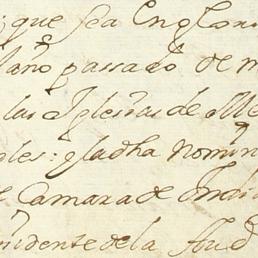 que sea En
año passado de m
las Iglesias de Me
les: q la dha nomin
Camara de Indi
sidente de la Aud